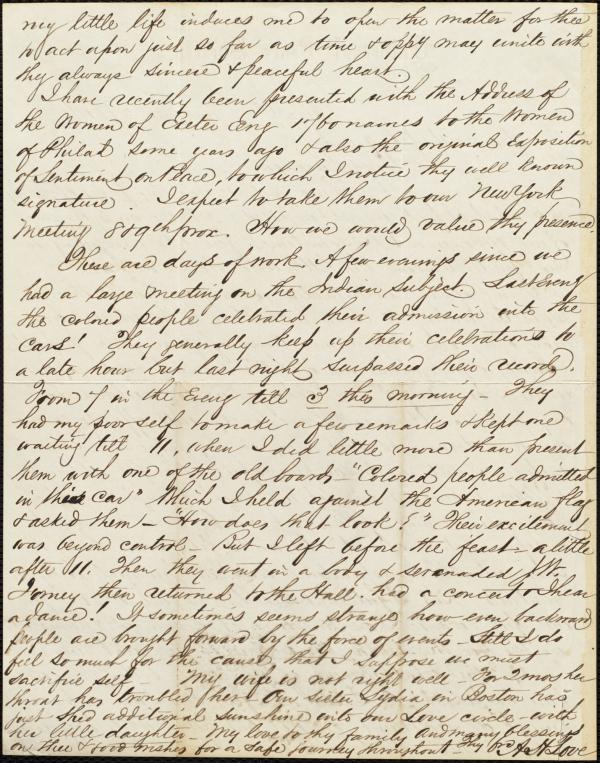 my little life induces me to open the matter for thee
to act upon just so far as time & oppy may unite with
thy always sincere & peaceful heart.
I have recently been presented with the Address of
the Women of Exeter Eng 1760 names to the Women
of Philada some years ago & also the original Exposition
of Sentiment on Peace, to which I notice thy well known
signature. I expect to take them to our New York
Meeting 8 & 9th prox. How we would value thy presence.
These are days of work. A few evenings since we
had a large meeting on the Indian Subject. Last Eveng
the colored people celebrated their admission into the
cars! They generally keep up their celebrations to
a late hour but last night surpassed their record.
From 7 in the Eveng till 3 this morning - They
had my poor self to make a few remarks & kept one
waiting till 11, when I did little more than present
them with one of the old boards - "Colored people admitted
in this car" which I held against the American flag
& asked them - "How does that look?" Their excitement
was beyond control - But I left before the feast - a little
after 11. Then they went in a body & serenaded J W.
Forney then returned to the Hall. had a concert & I hear
a dance! It sometimes seems strange how even backward
people are brought forward by the force of events. Still I do
feel so much for the cause, that I suppose we must
sacrifice self - My wife is not right well - For 2 mos her
throat has troubled her. Our sister Lydia in Boston has
just shed additional sunshine into our Love circle - with
her little daughter - My love to thy family and many blessings
on thee & good wishes for a safe journey throughout - Thy frd A H Love